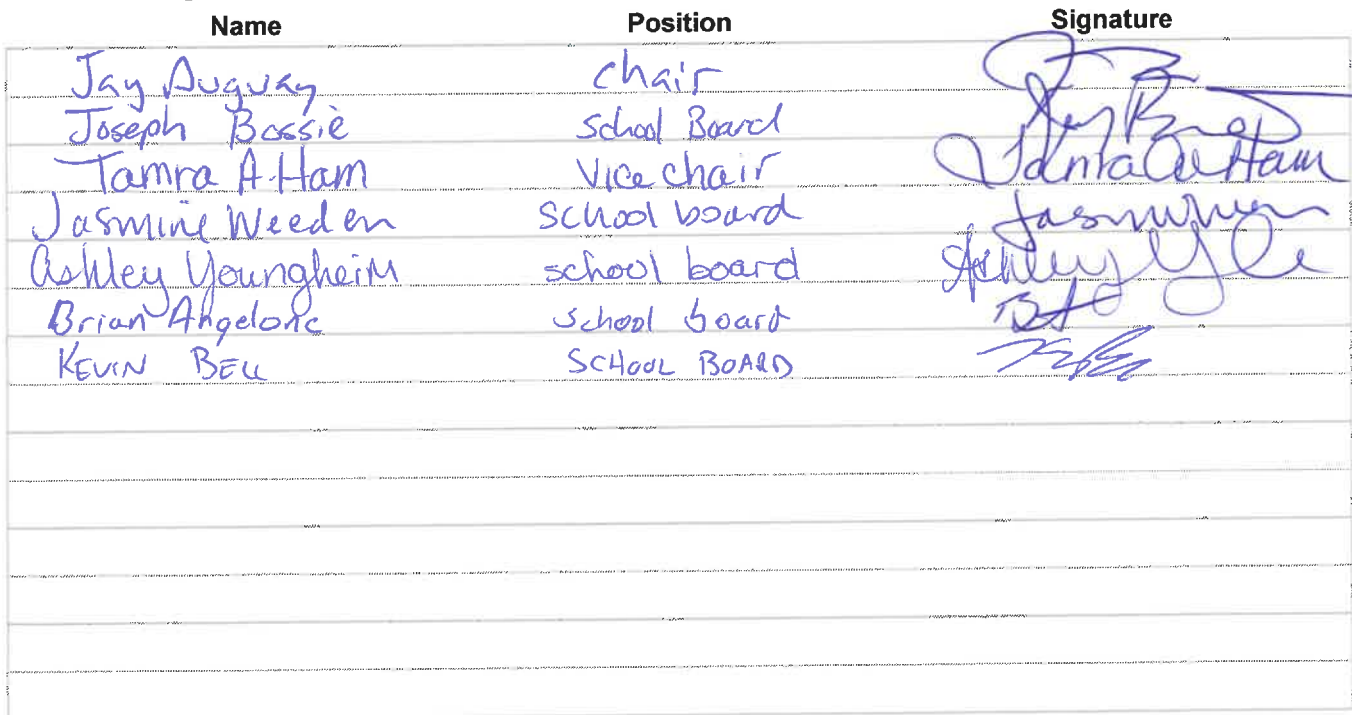 Name Position Signature
Jay Duguay chair
Joseph Bossie School Board
Tamra A. Ham Vice chair Tamra A Ham
Jasmine Weeden School board Jasmine
Ashley Youngheim school board Ashley
Brian Angelone School board BA
KEVIN BELL SCHOOL BOARD